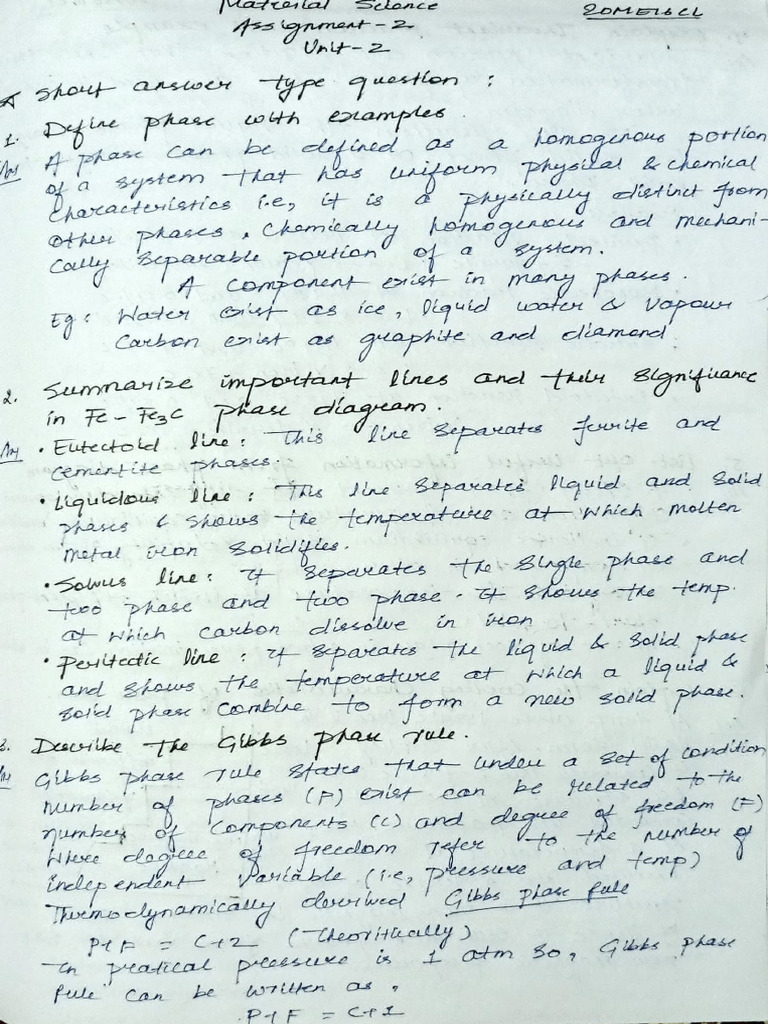 Material Science
20ME16CL
Assignment-2
Unit-2
A Short answer type question :
1. Define phase with examples.
Ans A phase can be defined as a homogenous portion
of a system that has uniform physical & chemical
characteristics i.e, it is a physically distinct from
other phases, chemically homogenous and mechani-
cally separable portion of a system.
A component exist in many phases.
Eg: Water exist as ice, liquid water & vapour
Carbon exist as graphite and diamond
2. Summarize important lines and their significance
in Fe-Fe3C phase diagram.
Ans • Eutectoid line : This line separates ferrite and
cementite phases.
• Liquidous line : This line separates liquid and solid
phases & shows the temperature at which molten
metal iron solidifies.
• Solvus line : It separates the single phase and
two phase and two phase. It shows the temp.
at which carbon dissolve in iron
• Peritectic line : It separates the liquid & solid phase
and shows the temperature at which a liquid &
solid phase combine to form a new solid phase.
3. Describe the Gibbs phase rule.
Ans Gibbs phase rule states that under a set of condition
number of phases (P) exist can be related to the
number of components (C) and degree of freedom (F)
where degree of freedom refer to the number of
independent variable (i.e, pressure and temp)
Thermodynamically derived Gibbs phase rule
P+F = C+2 (Theoritically)
In pratical pressure is 1 atm so, Gibbs phase
rule can be written as,
P+F = C+1